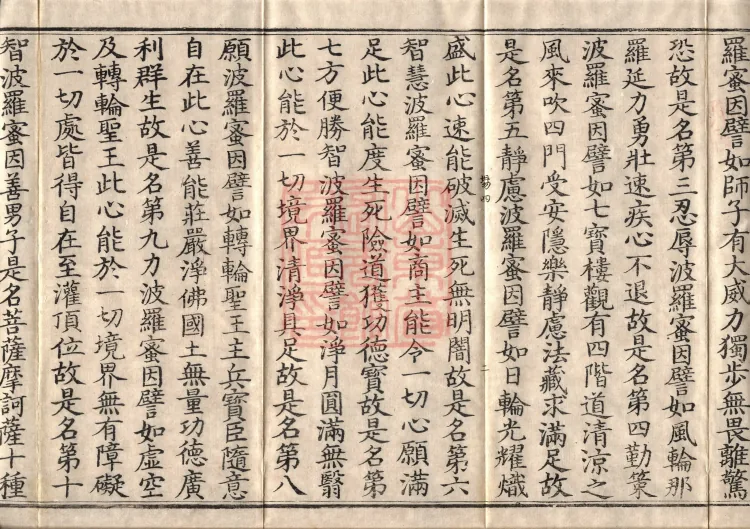 羅蜜因譬如師子有大威力獨步無畏離驚
恐故是名第三忍辱波羅蜜因譬如風輪那
羅延力勇壯速疾心不退故是名第四勤策
波羅蜜因譬如七寶樓觀有四階道清涼之
風來吹四門受安隱樂靜慮法藏求滿足故
是名第五靜慮波羅蜜因譬如日輪光耀熾
盛此心速能破滅生死無明闇故是名第六
智慧波羅蜜因譬如商主能令一切心願滿
足此心能度生死險道獲功德寶故是名第
七方便勝智波羅蜜因譬如淨月圓滿無翳
此心能於一切境界清淨具足故是名第八
願波羅蜜因譬如轉輪聖王主兵寶臣隨意
自在此心善能莊嚴淨佛國土無量功德廣
利群生故是名第九力波羅蜜因譬如虛空
及轉輪聖王此心能於一切境界無有障礙
於一切處皆得自在至灌頂位故是名第十
智波羅蜜因善男子是名菩薩摩訶薩十種